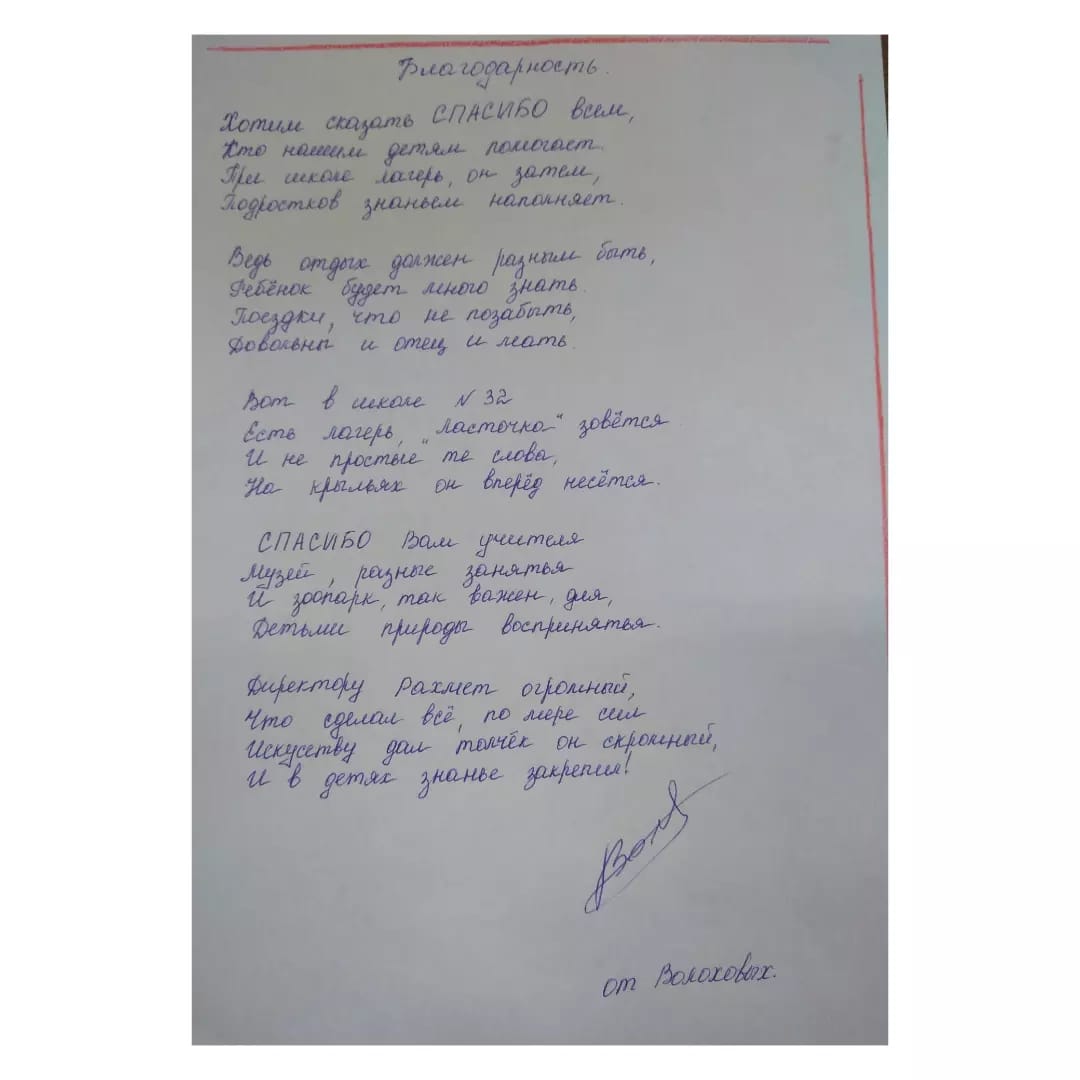 Благодарность.
Хотим сказать СПАСИБО всем,
Кто нашим детям помогает.
При школе лагерь, он затем,
Подростков знаньем наполняет.
Ведь отдых должен разным быть,
Ребёнок будет много знать.
Поездки, что не позабыть,
Довольны и отец и мать.
Вот в школе N 32
Есть лагерь, „Ласточка" зовётся
И не простые те слова,
На крыльях он вперёд несётся.
СПАСИБО Вам учителя
Музей, разные занятья
И зоопарк, так важен, для,
Детьми природы воспринятья.
Директору Рахмет огромный,
Что сделал всё, по мере сил
Искусству дал толчёк он скромный,
И в детях знанье закрепил!
от Волоховых.